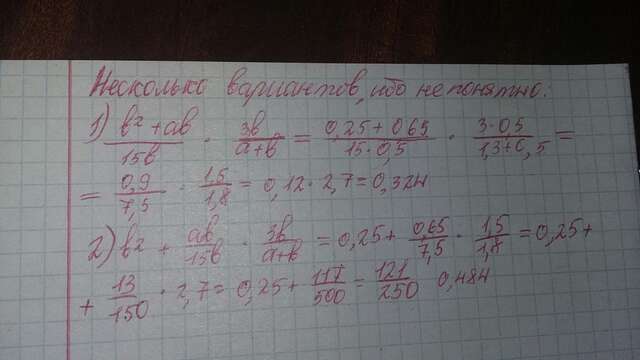 Несколько вариантов, ибо не понятно:
1) (b² + ab)/(15b) · (3b)/(a+b) = (0,25 + 0 65)/(15·0,5) · (3·0,5)/(1,3+0,5) =
= (0,9)/(7,5) · (1,5)/(1,8) = 0,12 · 2,7 = 0,324
2) b² + (ab)/(15b) · (3b)/(a+b) = 0,25 + (0,65)/(7,5) · (1,5)/(1,8) = 0,25 +
+ (13)/(150) · 2,7 = 0,25 + (117)/(500) = (121)/(250) 0,484